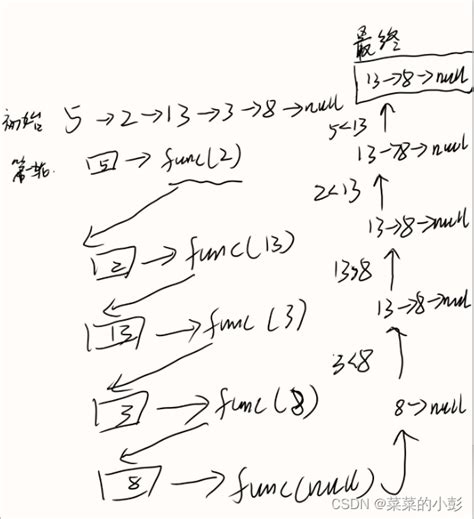 最终
13→8→null
初始 5→2→13→3→8→null
5<13
第一轮 5→func(2)
13→8→null
2<13
2→func(13)
13→8→null
13>8
13→func(3)
13→8→null
3<8
3→func(8)
8→null
8→func(null)
CSDN @菜菜的小彭